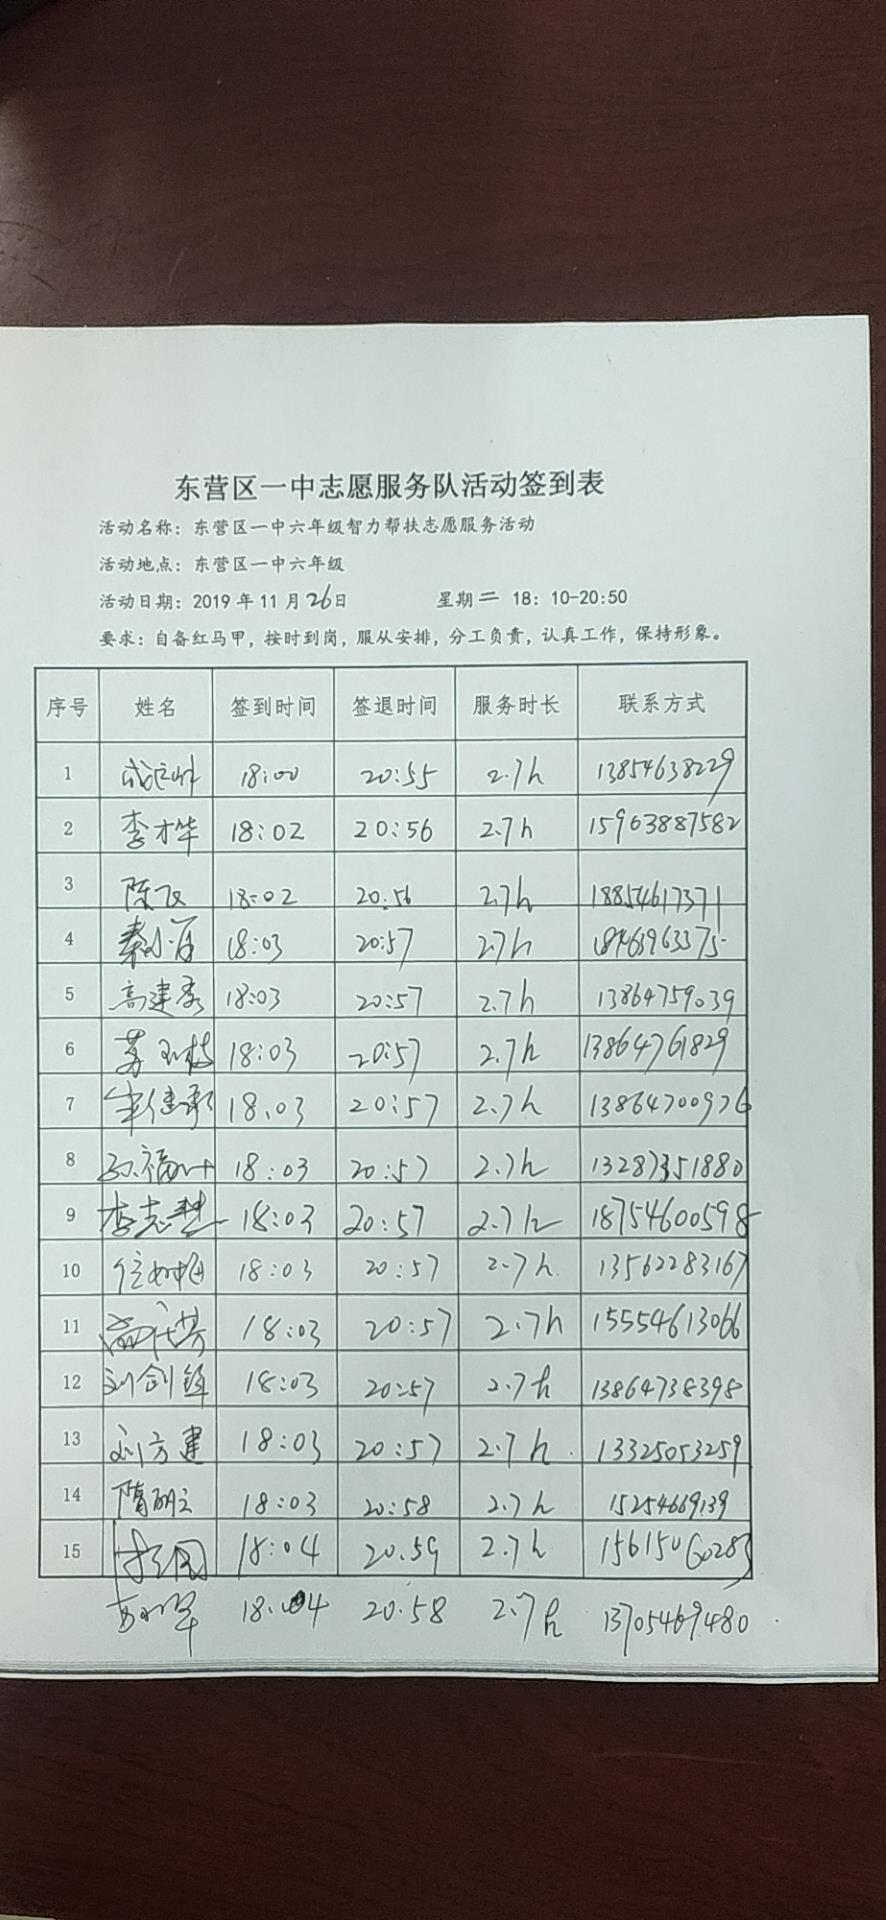 东营区一中志愿服务队活动签到表
活动名称：东营区一中六年级智力帮扶志愿服务活动
活动地点：东营区一中六年级
活动日期：2019年11月26日 星期二 18：10-20:50
要求：自备红马甲，按时到岗，服从安排，分工负责，认真工作，保持形象。
序号 姓名 签到时间 签退时间 服务时长 联系方式
1 18:00 20:55 2.7h 13854638229
2 李才华 18:02 20:56 2.7h 15963887582
3 陈飞 18:02 20:56 2.7h 18854617371
4 秦小 18:03 20:57 2.7h
5 高建秀 18:03 20:57 2.7h 13864759039
6 苏玉梅 18:03 20:57 2.7h 13864761829
7 18:03 20:57 2.7h 13864700976
8 18:03 20:57 2.7h 13287351880
9 李志慧 18:03 20:57 2.7h 18754600598
10 18:03 20:57 2.7h 13562283167
11 18:03 20:57 2.7h 15554613066
12 刘剑锋 18:03 20:57 2.7h 13864738398
13 刘方建 18:03 20:57 2.7h. 13325053259
14 隋明立 18:03 20:58 2.7h 15254669139
15 18:04 20.59 2.7h 15615060283
18.04 20.58 2.7h 13705469480